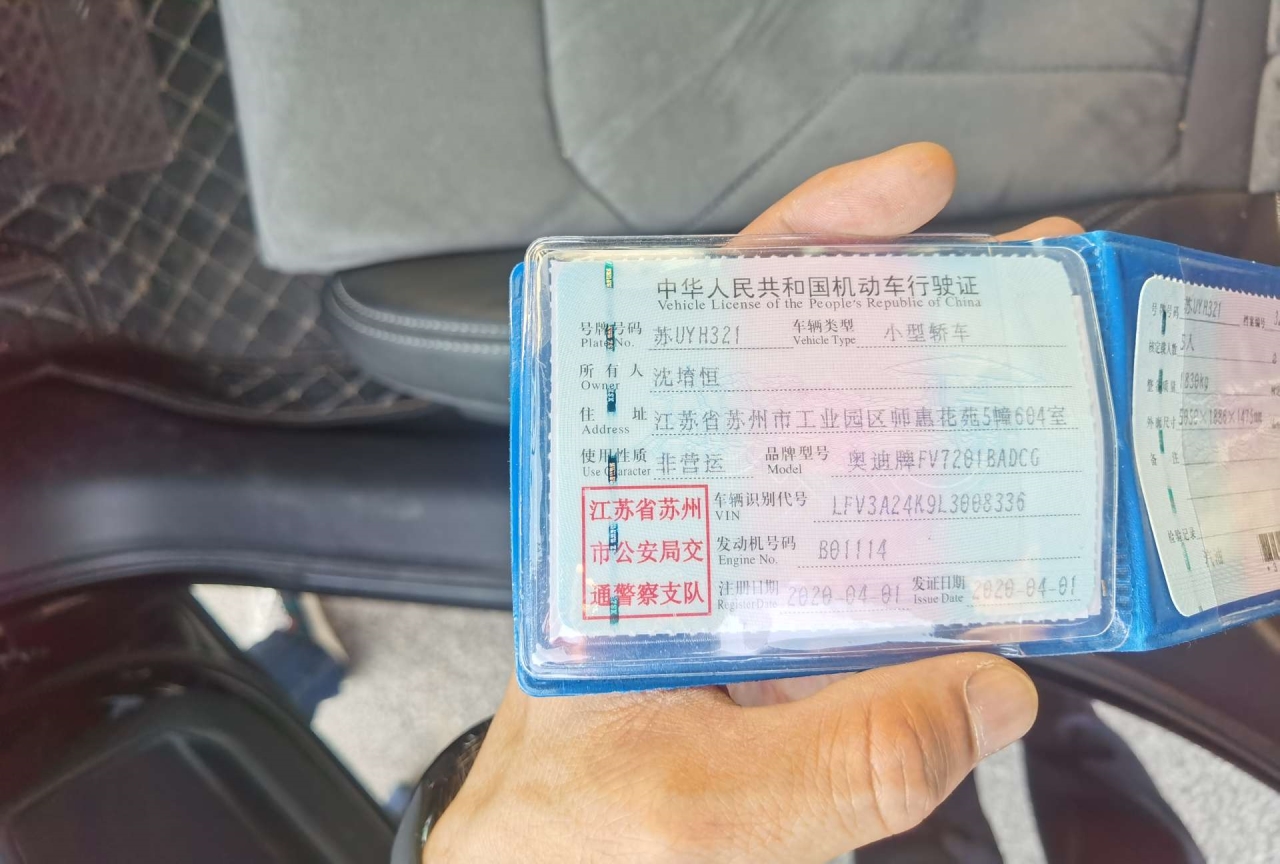 中华人民共和国机动车行驶证
Vehicle License of the People's Republic of China
号牌号码 苏UYH321 车辆类型 小型轿车
Plate No. Vehicle Type
所有人 沈堉恒
Owner
住址 江苏省苏州市工业园区师惠花苑5幢604室
Address
使用性质 非营运 品牌型号 奥迪牌FV7201BADCG
Use Character Model
江苏省苏州
市公安局交
通警察支队
车辆识别代号 LFV3A24K9L3008336
VIN
发动机号码 B01114
Engine No.
注册日期 2020-04-01 发证日期 2020-04-01
Register Date Issue Date
号牌号码 苏UYH321
核定载人数 5人
整备质量 1830kg
外廓尺寸
备注
检验记录